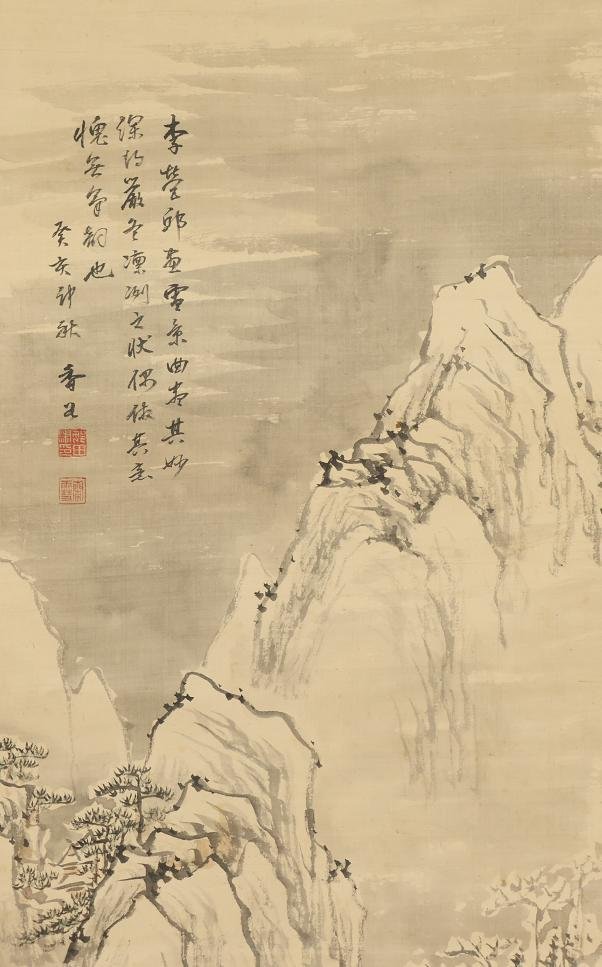 李營邱畫雪景曲盡其妙
深得嚴冬凜冽之狀偶倣其意
愧無筆韻也
癸亥初秋 香